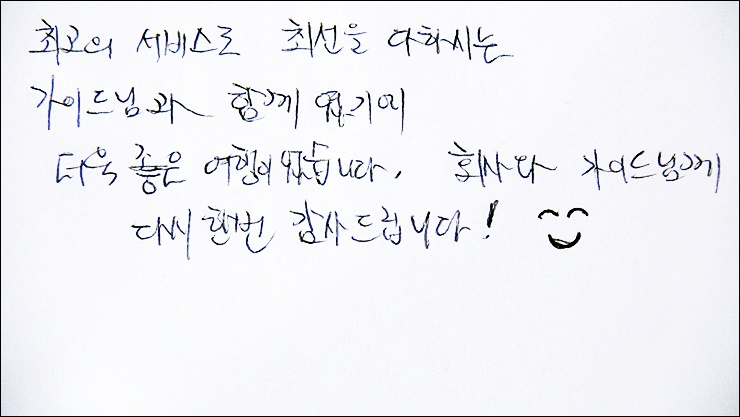 최고의 서비스로 최선을 다하시는
가이드님과 함께 였기에
더욱 좋은 여행이였습니다. 회사와 가이드님께
다시한번 감사드립니다!